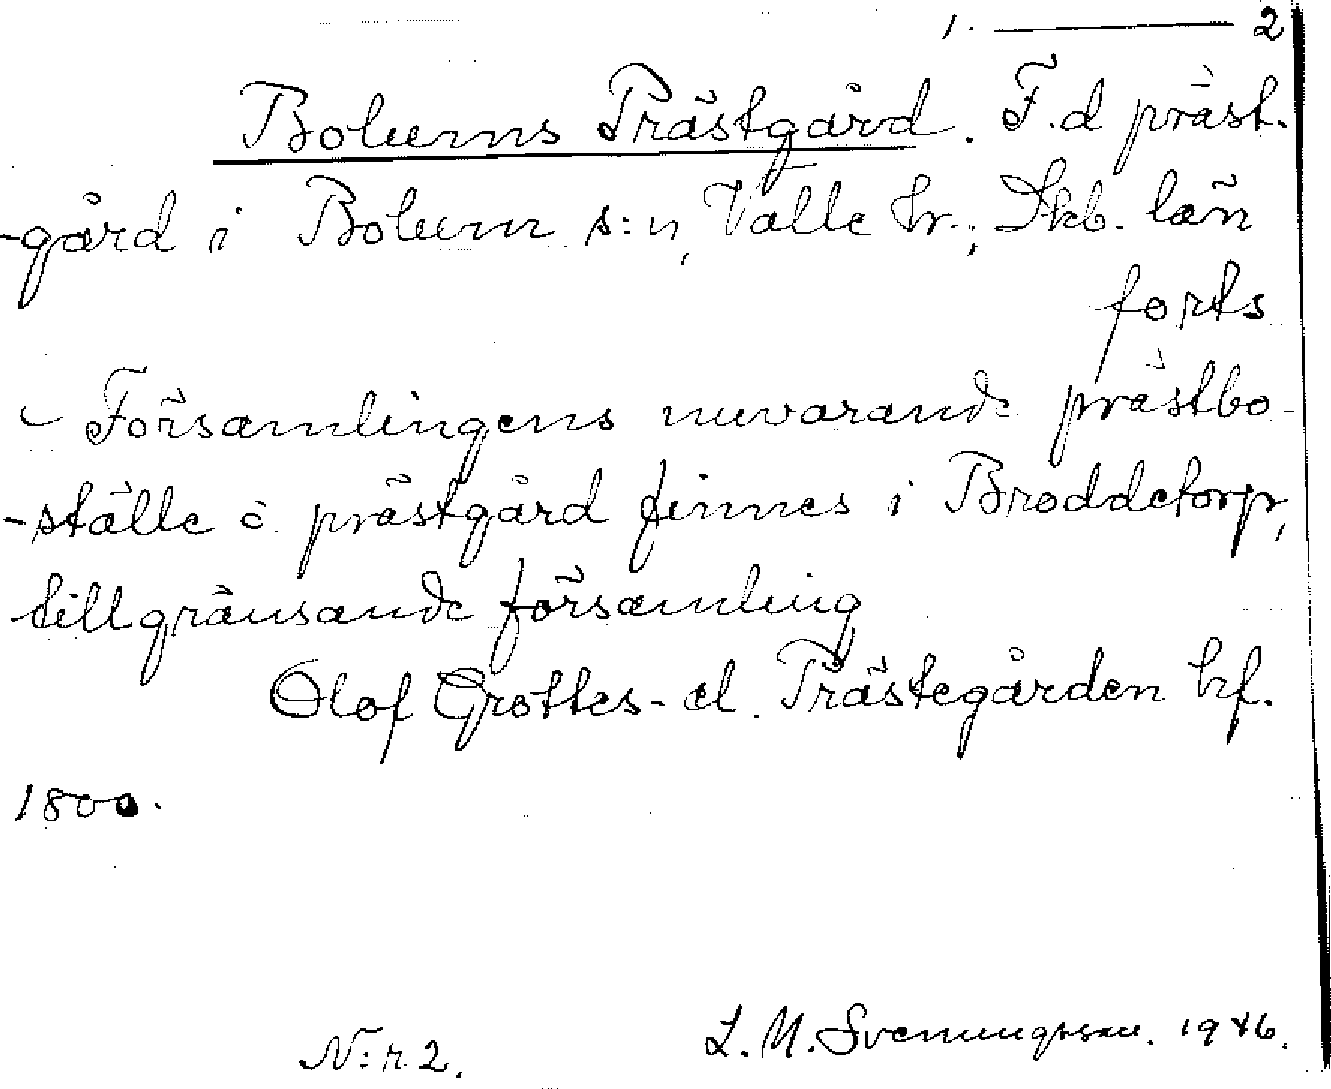 1. ——— 2
Bolums Prästgård. F.d präst-
-gård i Bolum s:n, Valle hr., Skb. län
forts
- Församlingens nuvarande prästbo-
-ställe å prästgård finnes i Broddetorp,
tillgränsande församling
Olof Grottes- el. Prästegården kf.
1800.
N:r 2. L. M. Svenungsson. 1946.